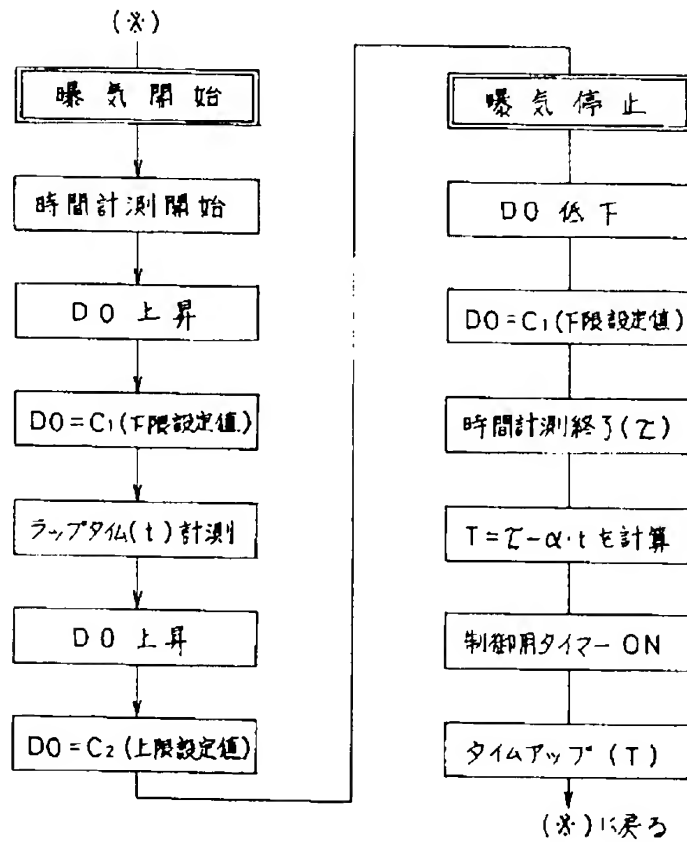 (※)
曝気開始
時間計測開始
DO 上昇
DO=C₁(下限設定値)
ラップタイム(t)計測
DO 上昇
DO=C₂(上限設定値)
曝気停止
DO 低下
DO=C₁(下限設定値)
時間計測終了(τ)
T=τ-α・t を計算
制御用タイマーON
タイムアップ(T)
(※)に戻る